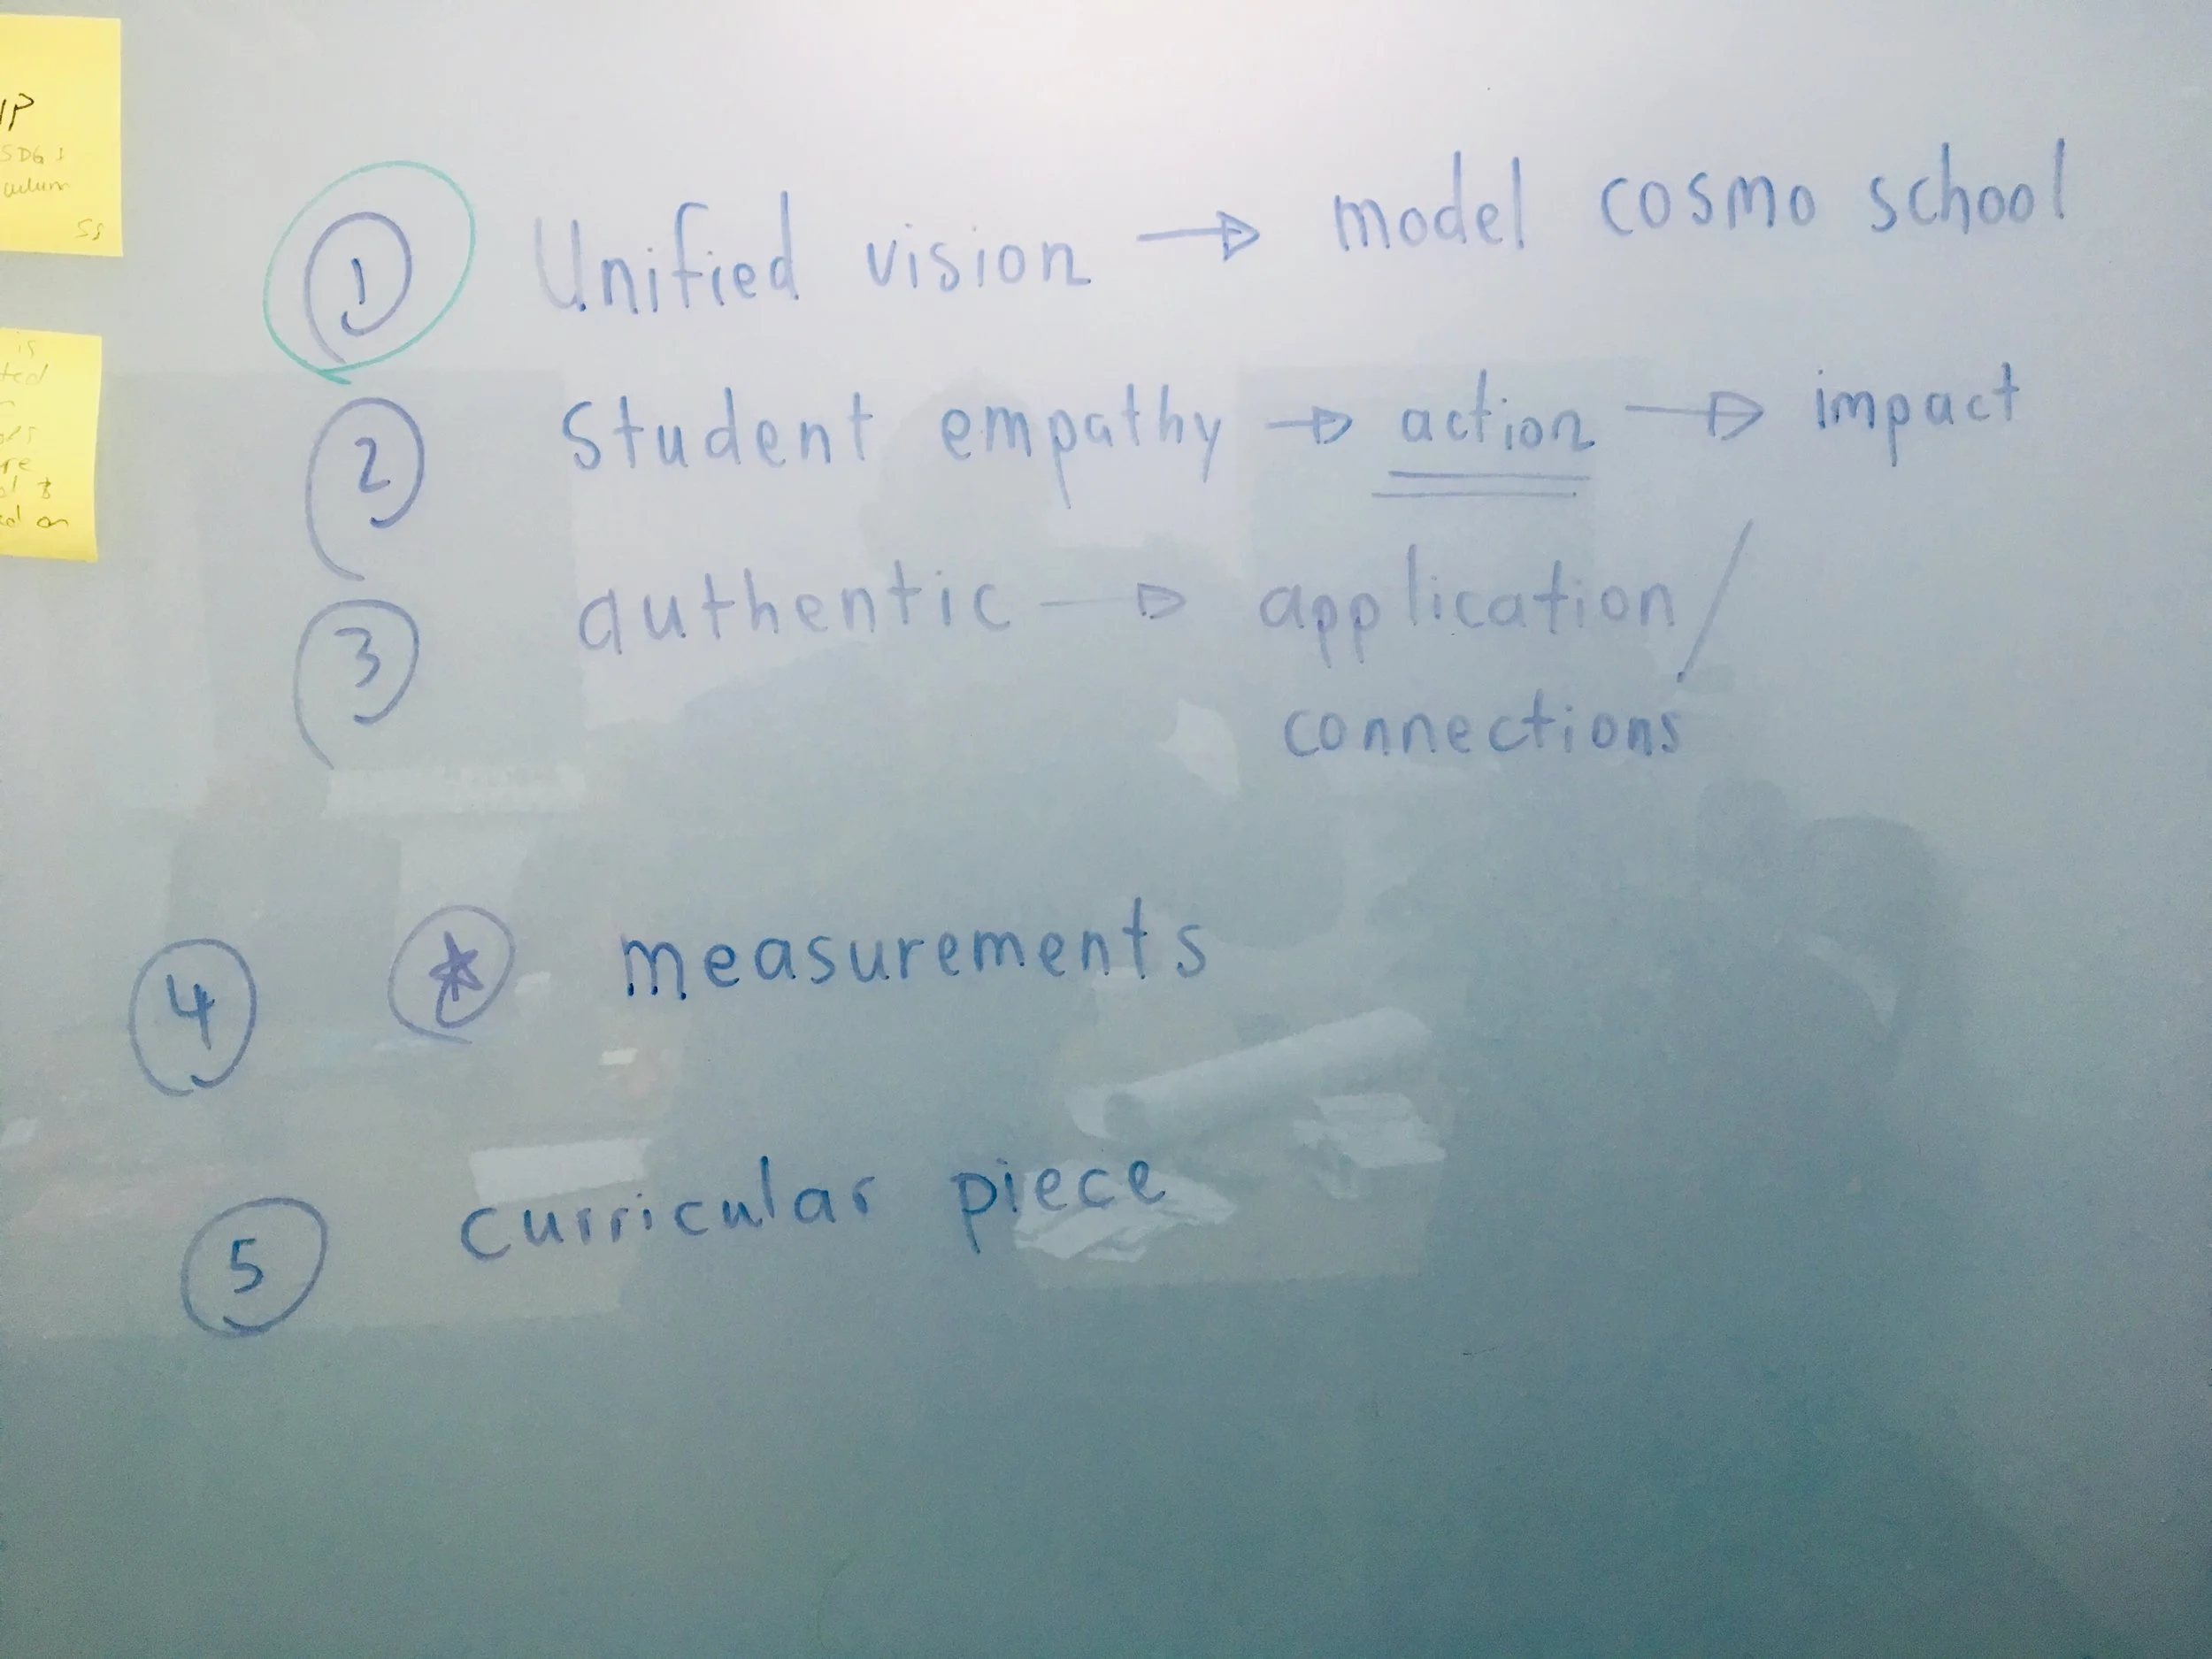 ① Unified vision → model cosmo school
② Student empathy → action → impact
③ authentic → application/
connections
④ ⭐ measurements
⑤ curricular piece
is
on